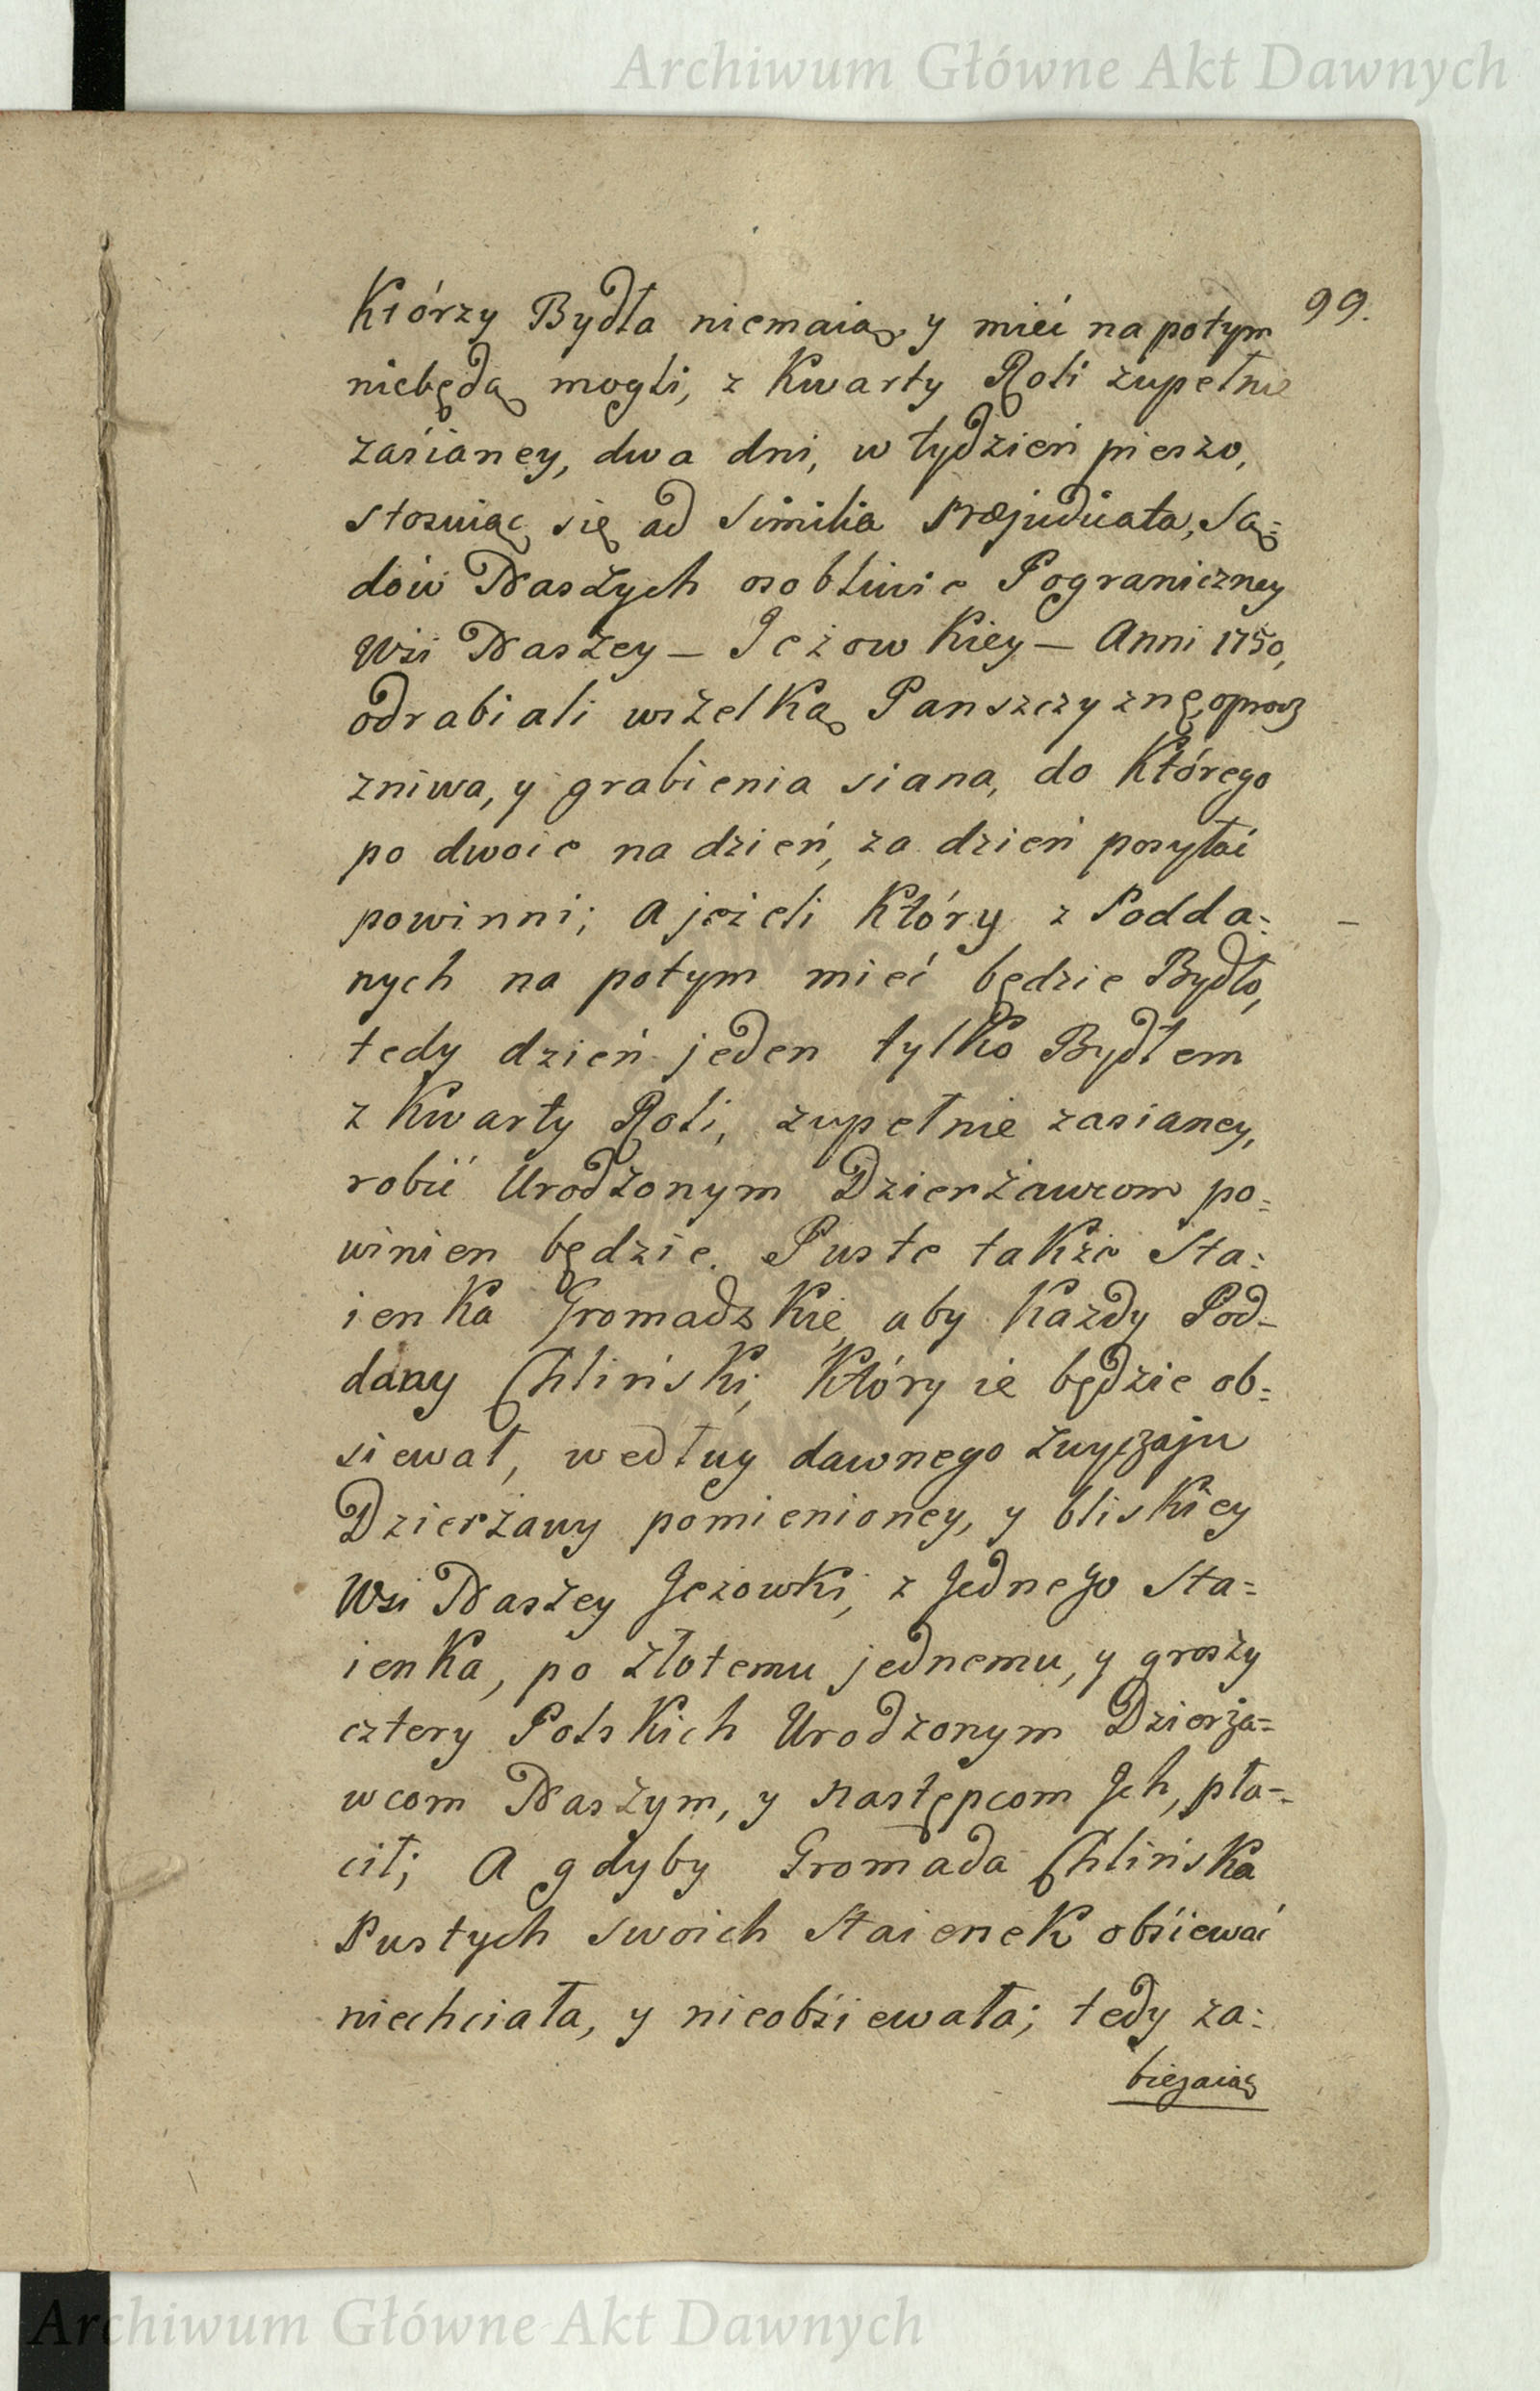 Archiwum Główne Akt Dawnych
99.
Którzy Bydła niemaią, y mieć na potym
niebędą mogli, z Kwarty Roli zupełnie
zasianey, dwa dni, w tydzień pieszo,
stosuiąc się ad Similia Præjudicata, Są=
dów Naszych osobliwie Pograniczney
Wsi Naszey – Jeżowkiey – Anni 1750,
odrabiali wszelką Panszczyznę, oprocz
zniwa, y grabienia siana, do Którego
po dwoie na dzień, za dzień posyłać
powinni; A jeżeli Który z Podda=
nych na potym mieć będzie Bydło,
tedy dzień jeden tylko Bydłem
z Kwarty Roli, zupełnie zasianey,
robić Urodzonym Dzierżawcom po=
winien będzie. Puste także Sta=
ienka Gromadzkie, aby Każdy Pod=
dany Chliński, Który ie będzie ob=
siewał, według dawnego zwyczaju
Dzierżawy pomienioney, y bliskiey
Wsi Naszey Jeżowki, z Jednego Sta=
ienka, po złotemu jednemu, y groszy
cztery Polskich Urodzonym Dzierża=
wcom Naszym, y Następcom Jch, pła=
cił; A gdyby Gromada Chlińska
Pustych swoich Staienek obsiewać
niechciała, y nieobsiewała; tedy za=
biegaiąc
Archiwum Główne Akt Dawnych